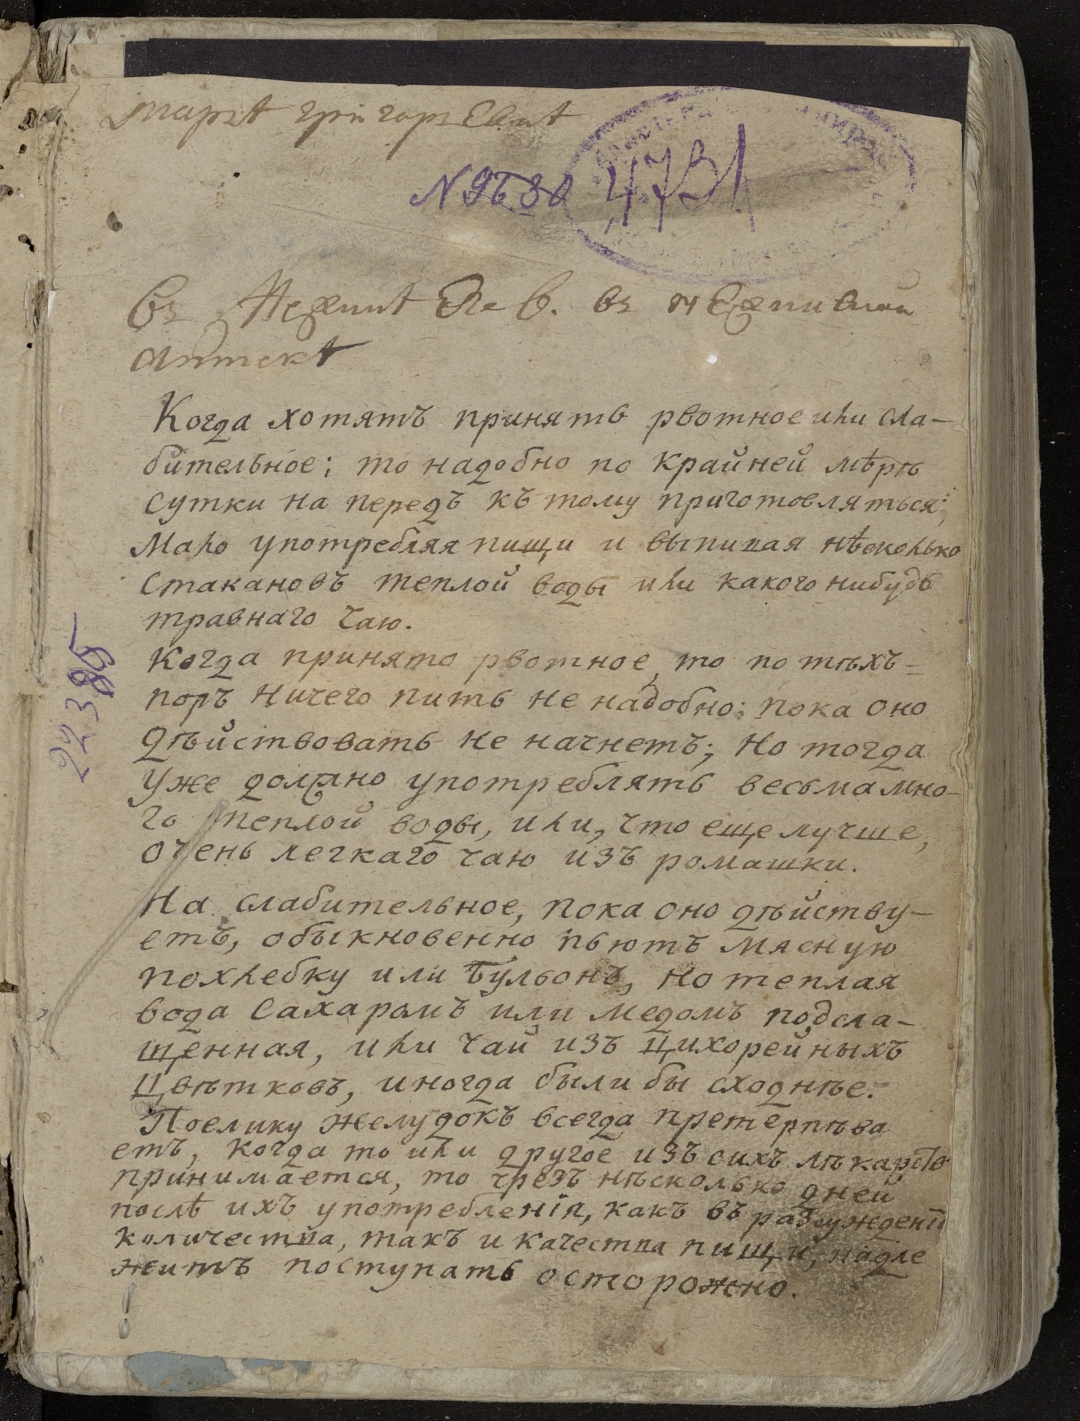 № 9680 4731
въ Нежинѣ въ
аптекѣ
Когда хотятъ принять рвотное или сла-
бительное; то надобно по крайней мѣрѣ
сутки на передъ къ тому приготовляться;
Мало употребляя пищи и выпивая нѣсколько
стакановъ теплой воды или какого нибудь
травнаго чаю.
Когда принято рвотное, то по тѣхъ-
поръ ничего пить не надобно: пока оно
дѣйствовать не начнетъ; но тогда
уже должно употреблять весьма мно-
го теплой воды, или, что еще лучше,
очень легкаго чаю изъ ромашки.
На слабительное, пока оно дѣйству-
етъ, обыкновенно пьютъ мясную
похлебку или бульонъ, но теплая
вода сахаромъ или медомъ подсла-
щенная, или чай изъ цихорейныхъ
цвѣтковъ, иногда были бы сходнѣе.
Поелику желудокъ всегда претерпѣва
етъ, когда то или другое изъ сихъ лѣкарствъ
принимается, то чрезъ нѣсколько дней
послѣ ихъ употребленія, какъ въ разсужденіи
количества, такъ и качества пищи, надле
житъ поступать осторожно.
22385